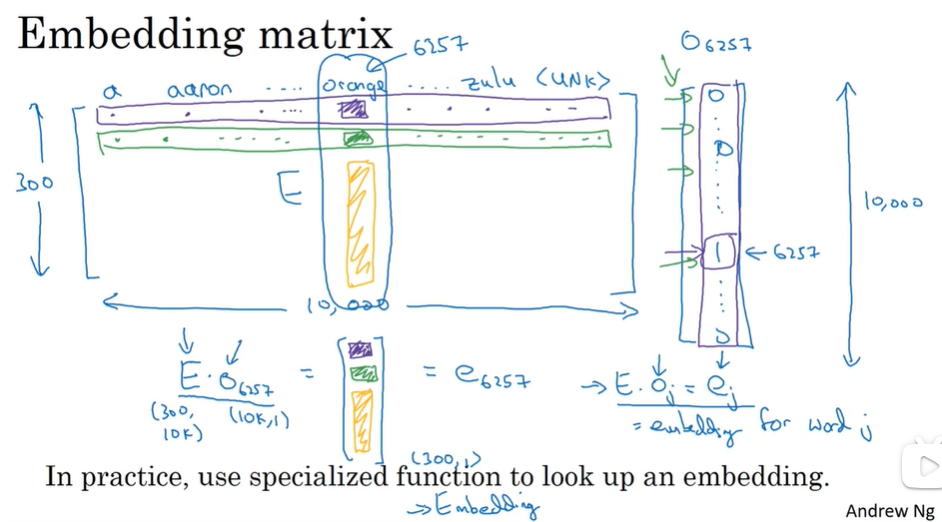 Embedding matrix
6257
O6257
a aaron ..... orange ..... zulu <UNK>
300
E
10,000
0
0
1
0
← 6257
10,000
E · O6257 = = e6257
(300, 10K) (10K, 1)
(300, 1)
→ E · Oj = ej
= embedding for word j
In practice, use specialized function to look up an embedding.
→ Embedding
Andrew Ng